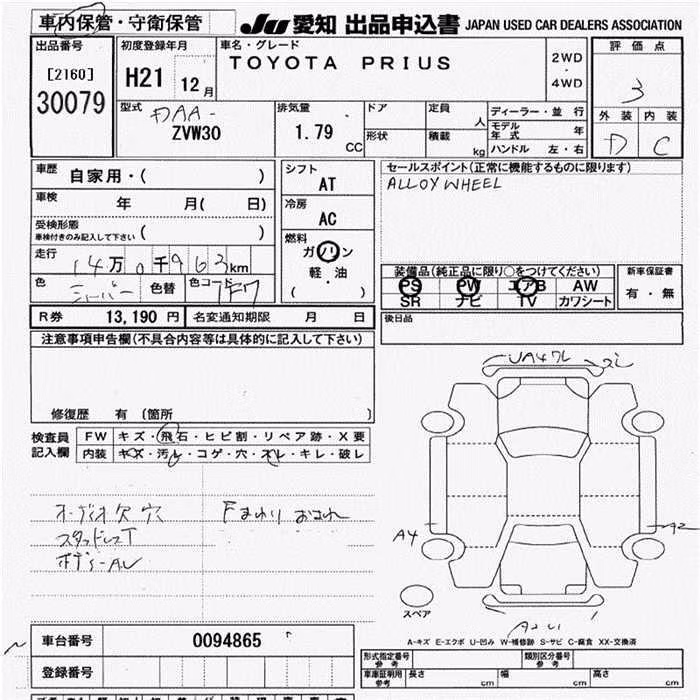 車内保管・守衛保管
JU 愛知 出品申込書 JAPAN USED CAR DEALERS ASSOCIATION
出品番号
[2160]
30079
初度登録年月
H21 12月
車名・グレード
TOYOTA PRIUS
2WD
・
4WD
評価点
3
外装 内装
D C
型式
DAA-
ZVW30
排気量
1.79
CC
ドア
形状
定員
人
積載
kg
ディーラー・並行
モデル年式 年
ハンドル 左・右
車歴
自家用・( )
車検
年 月( 日)
受検形態
車検付きのみ記入して下さい ( )
走行
14万0千963km
色
シルバー
色替
色コード
1F7
シフト
AT
冷房
AC
燃料
ガソリン
軽・油
( )
セールスポイント(正常に機能するものに限ります)
ALLOY WHEEL
装備品(純正品に限り○をつけてください)
PS PW エアB AW
SR ナビ TV カワシート
新車保証書
有・無
R券 13,190円
名変通知期限 月 日
後日品
注意事項申告欄(不具合内容等は具体的に記入して下さい)
修復歴 有 (箇所 )
検査員
記入欄
FW キズ・飛石・ヒビ割・リペア跡・X要
内装 キズ・汚レ・コゲ・穴・スレ・キレ・破レ
オーディオ欠 穴
スタッドレスT
ボデーAU
Fまわり
A4
A2
スペア
A-キズ E-エクボ U-凹み W-補修跡 S-サビ C-腐食 XX-交換済
車台番号 0094865
登録番号
形式指定番号
参考
類別区分番号
参考
車庫証明用
参考
長さ cm 幅 cm 高さ cm